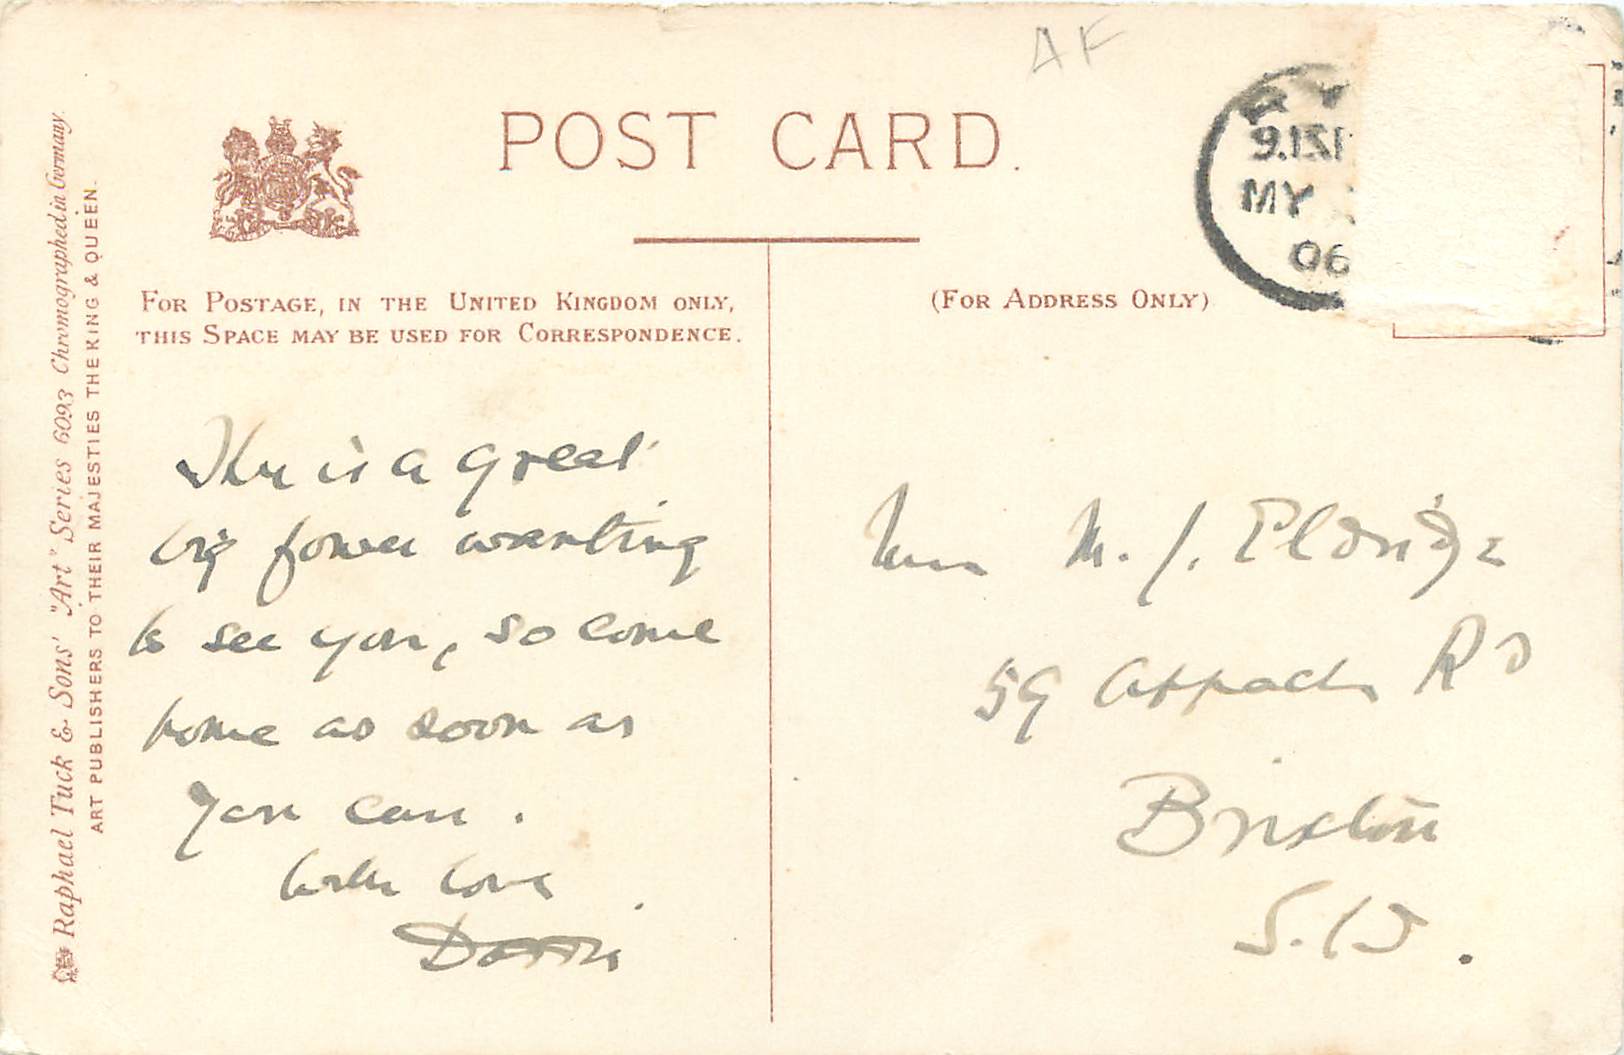 AF
POST CARD.
9.15P
MY
06
FOR POSTAGE, IN THE UNITED KINGDOM ONLY,
THIS SPACE MAY BE USED FOR CORRESPONDENCE.
(FOR ADDRESS ONLY)
is a great
big flower wanting
to see you, so come
home as soon as
you can.
with love
M. J. Eldridge
59 Appach Rd
Brixton
S.W.
Raphael Tuck & Sons' "Art" Series 6093 Chromographed in Germany.
ART PUBLISHERS TO THEIR MAJESTIES THE KING & QUEEN.